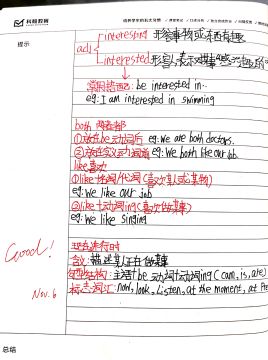 科翰教育
提示
adj
interesting 形容事物或东西有趣
interested 形容人表示对某事感兴趣的
常用搭配: be interested in…
eg: I am interested in swimming
both 两者都
①放在be动词后 eg: We are both doctors.
②放在实义动词前 eg: We both like our job.
like 喜欢
①like+名词/代词 (喜欢某人或某物)
eg: We like our job
②like+动词ing (喜欢做某事)
eg: We like singing
Good!
现在进行时
含义: 描述某人正在做某事
句型结构: 主语+be动词+动词ing (am, is, are)
标志词汇: now, look, listen, at the moment, at
Nov. 6
总结